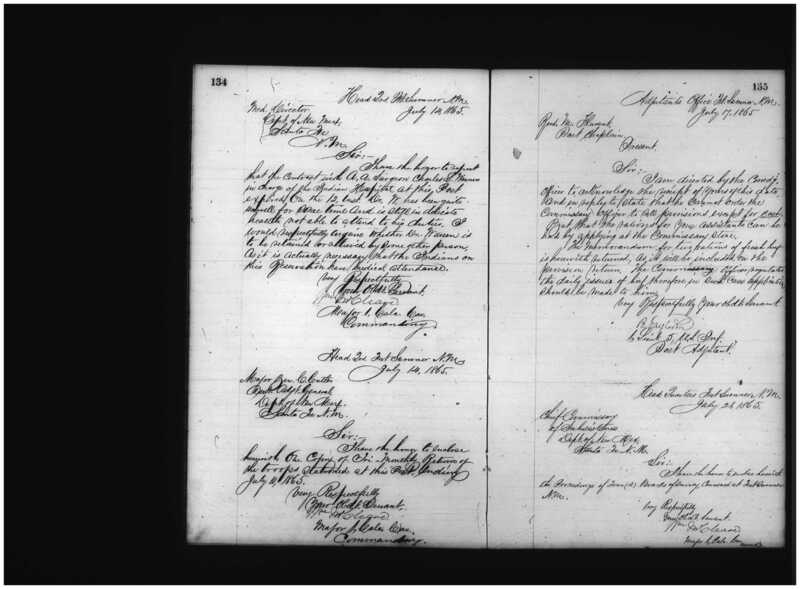 134
Head Qrs Ft Sumner N.M.
July 14, 1865.
Med. Director
Dept of New Mex.
Santa Fe
N.M.
Sir:
I have the honor to report
that the Contract with A. A. Surgeon Charles
in charge of the Indian Hospital at this Post
expired On the 12 inst. Dr. W. has been quite
unwell for some time And is still in delicate
health not able to attend to his duties. I
would respectfully enquire whether Dr. Warren is
to be retained or relieved by Some other person,
As it is actually necessary that the Indians on
this Reservation have Medical attendance.
Very Respectfully
Your Obt Servant.
Major 1. Cala. Cav.
Commanding
Head Qrs Fort Sumner N.M.
July 14, 1865.
Major Ben. C. Cutler
Asst Adjt General
Dept of New Mex.
Santa Fe N.M.
Sir.
I have the honor to enclose
herewith One Copy of Tri-Monthly Return of
the troops stationed at this Post Ending
July 10, 1865.
Very Respectfully
Your Obt Servant.
Major 1. Cala. Cav.
Commanding.
135
Adjutants Office Ft. Sumner N.M.
July 17, 1865
Post Chaplain
Present.
Sir:
I am directed by the Comdg.
officer to acknowledge the receipt of yours of this date
And in reply to state that he Cannot order the
Commissary Officer to sell provisions Except for
But that the rations for your assistants can be
had by applying at the Commissary Store.
The Memorandum for two rations of fresh beef
is herewith returned, As it will be included on the
provision return, the Commissary Officer regulates
the daily issues of beef therefore in Such Case application
should be made to him
Very Respectfully Your obdt Servant
1 Lieut. 5. Inf.
Post Adjutant.
Head Quarters Fort Sumner N.M.
July 1865.
Chief Commissary
of Subsistence
Dept of New Mex.
Santa Fe N.M.
Sir:
I have the honor to enclose herewith
the Proceedings of Boards of Survey Convened at Fort Sumner
N.M.
Very Respectfully
Your Obt Servant
Major 1. Cala. Cav